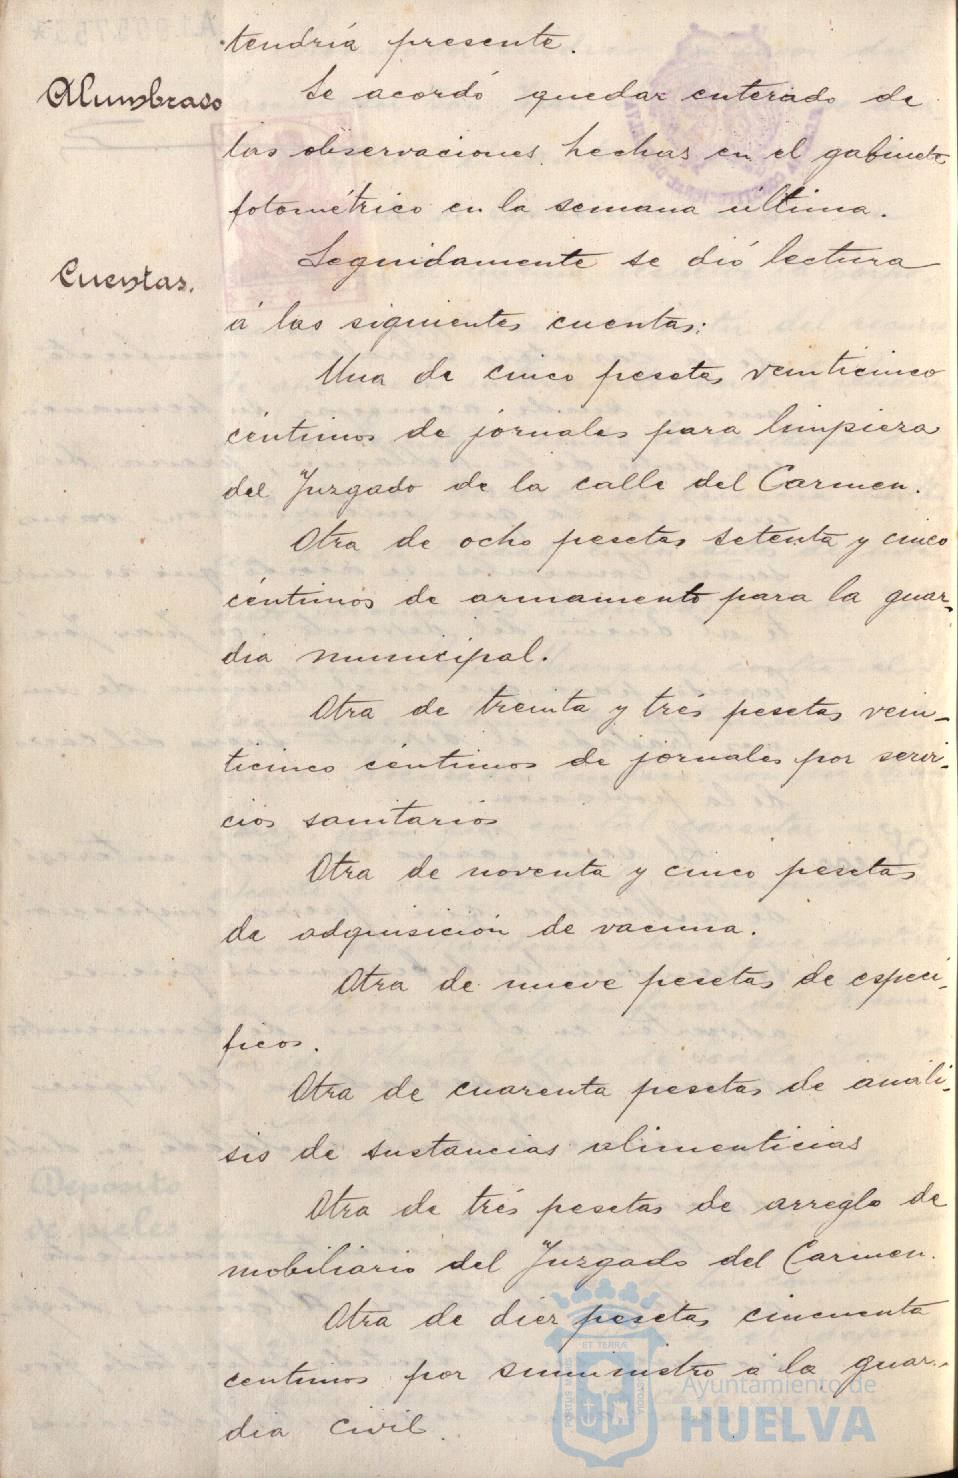 tendría presente.
Alumbrado
Se acordó quedar enterado de
las observaciones hechas en el gabinete
fotométrico en la semana última.
Cuentas.
Seguidamente se dió lectura
á las siguientes cuentas:
Una de cinco pesetas veinticinco
céntimos de jornales para limpieza
del Juzgado de la calle del Carmen.
Otra de ocho pesetas setenta y cinco
céntimos de armamento para la guar-
dia municipal.
Otra de treinta y trés pesetas vein-
ticinco céntimos de jornales por servi-
cios sanitarios
Otra de noventa y cinco pesetas
de adquisición de vacuna.
Otra de nueve pesetas de especí-
ficos.
Otra de cuarenta pesetas de análi-
sis de sustancias alimenticias
Otra de trés pesetas de arreglo de
mobiliario del Juzgado del Carmen.
Otra de diez pesetas cincuenta
centimos por suministro á la guar-
dia civil.
Ayuntamiento de
HUELVA